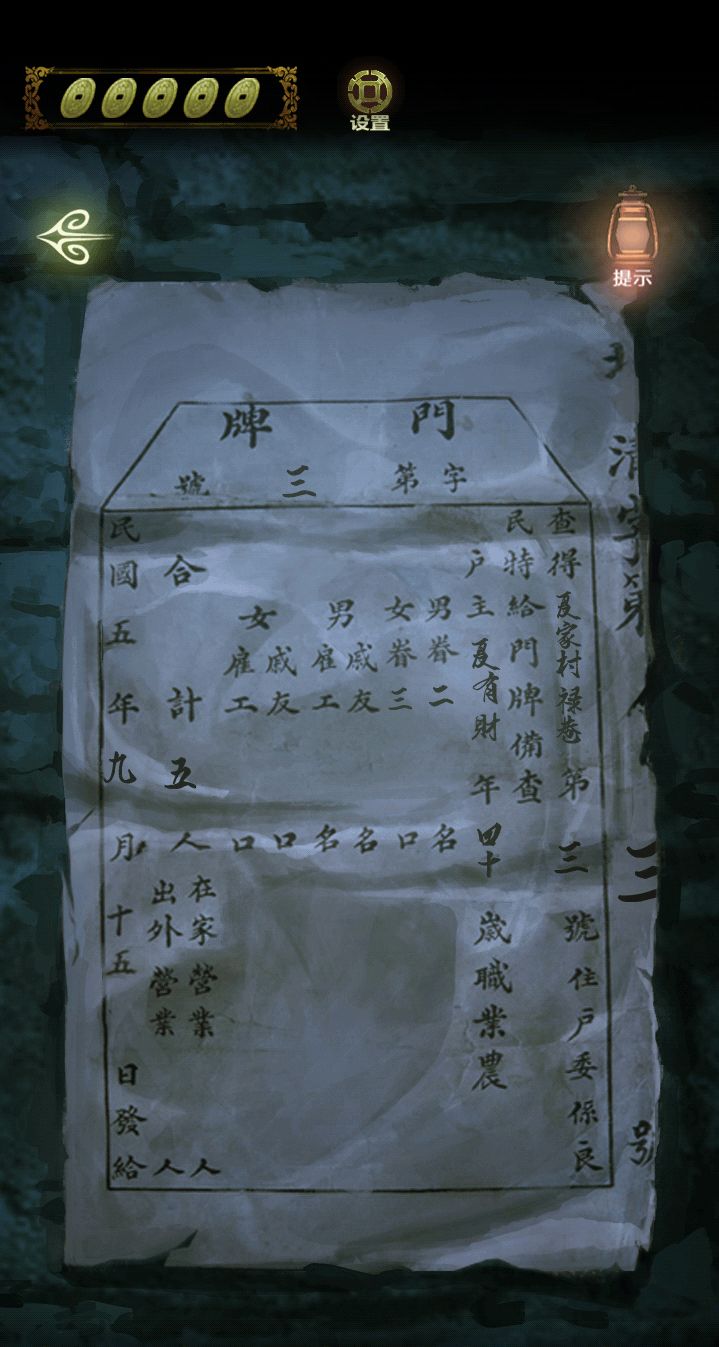 设置
提示
門牌
字第三號
查得夏家村禄巷第三號住戶委係良
民特給門牌備查
戶主夏有財年四十歲職業農
男眷二名
女眷三口
男
戚友名
雇工名
女
戚友口
雇工口
合計五人
在家營業人
出外營業人
民國五年九月十五日發給
清字第
三
号